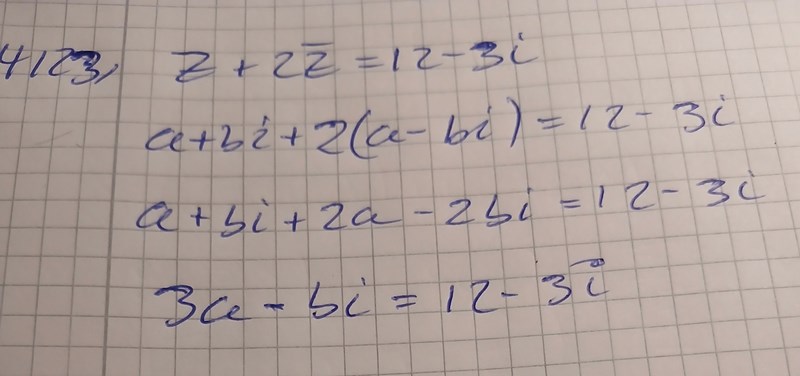 4123, z + 2z̅ = 12 - 3i
a + bi + 2(a - bi) = 12 - 3i
a + bi + 2a - 2bi = 12 - 3i
3a - bi = 12 - 3i